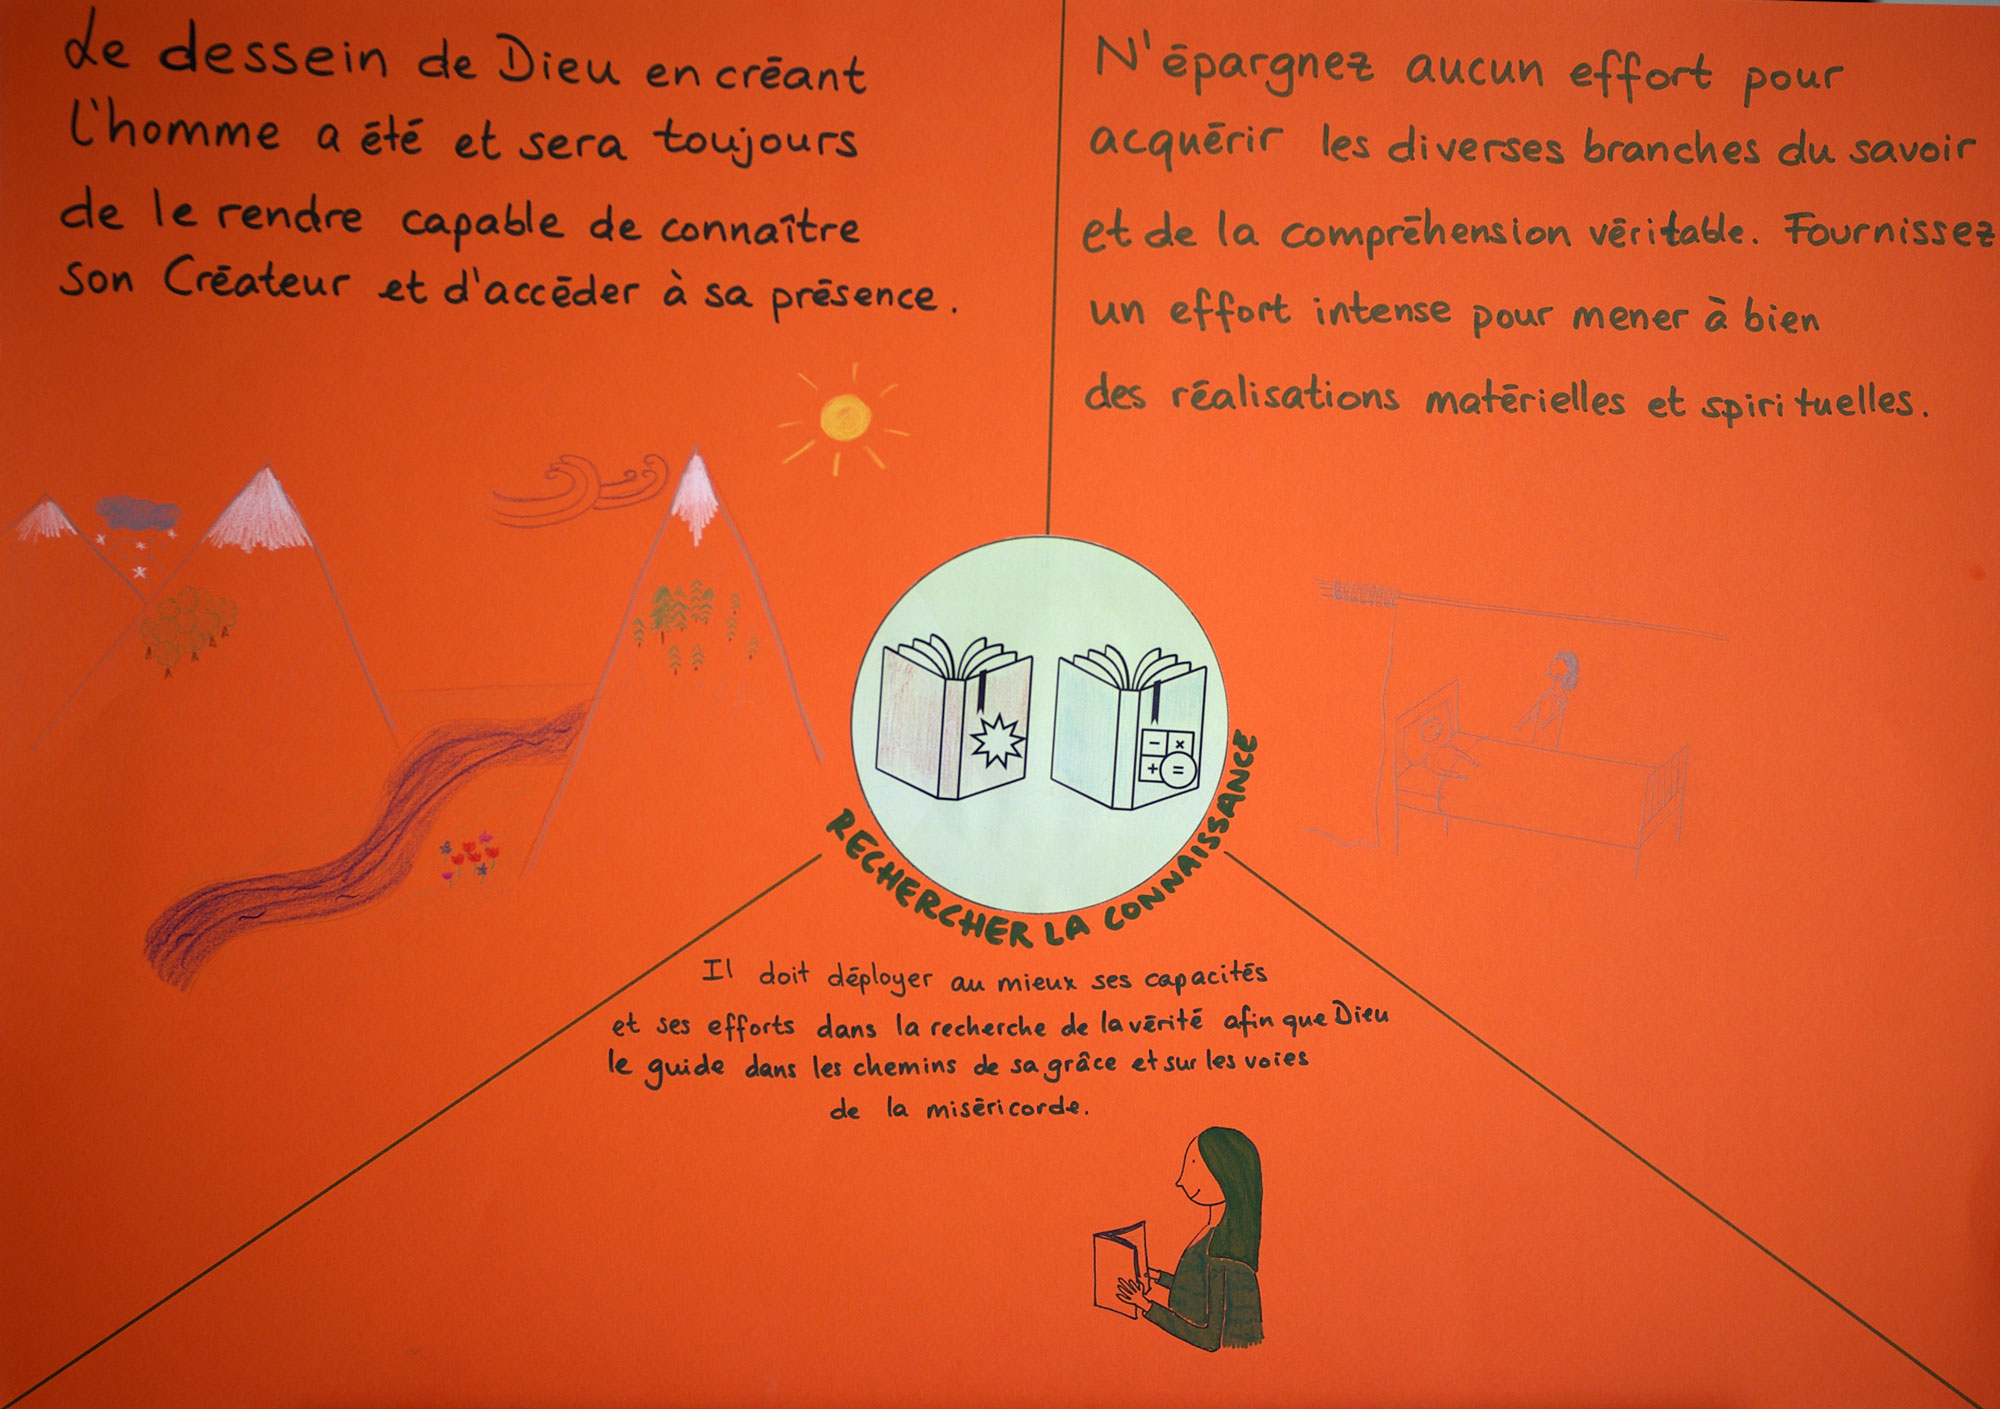 Le dessein de Dieu en créant
l'homme a été et sera toujours
de le rendre capable de connaître
son Créateur et d'accéder à sa présence.
N'épargnez aucun effort pour
acquérir les diverses branches du savoir
et de la compréhension véritable. Fournissez
un effort intense pour mener à bien
des réalisations matérielles et spirituelles.
- x
+ =
RECHERCHER LA CONNAISSANCE
Il doit déployer au mieux ses capacités
et ses efforts dans la recherche de la vérité afin que Dieu
le guide dans les chemins de sa grâce et sur les voies
de la miséricorde.